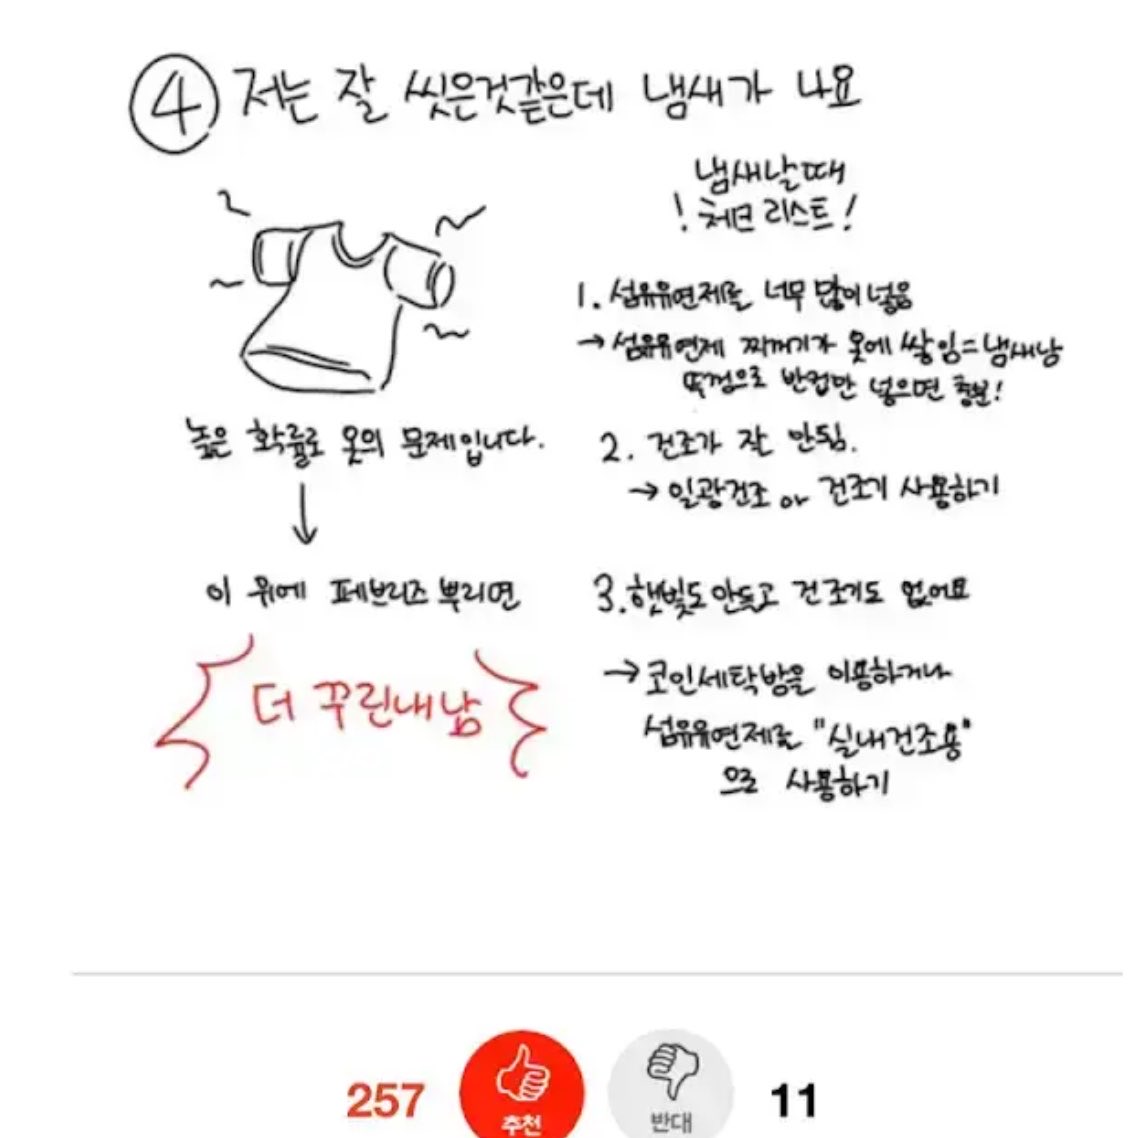 ④ 저는 잘 씻은것같은데 냄새가 나요
높은 확률로 옷의 문제입니다.
↓
이 위에 페브리즈 뿌리면
더 꾸린내남
냄새날때
! 체크리스트!
1. 섬유유연제를 너무 많이 넣음
→ 섬유유연제 찌꺼기가 옷에 쌓임=냄새남
뚜껑으로 반컵만 넣으면 충분!
2. 건조가 잘 안됨.
→ 일광건조 or 건조기 사용하기
3. 햇빛도 안들고 건조기도 없어요
→ 코인세탁방을 이용하거나
섬유유연제를 "실내건조용"
으로 사용하기
257 추천 반대 11